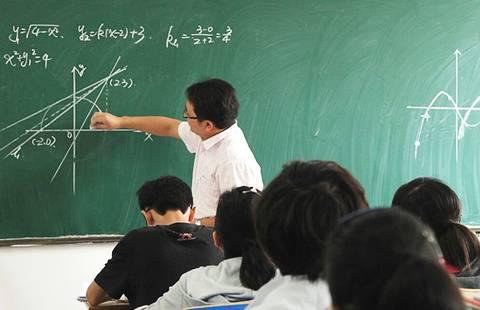 y₁=√4-x². y₂=k(x-2)+3. k₁=3-0/2+2=3/4
x²+y₁²=4
y
(2.3)
0 x
(-2.0)